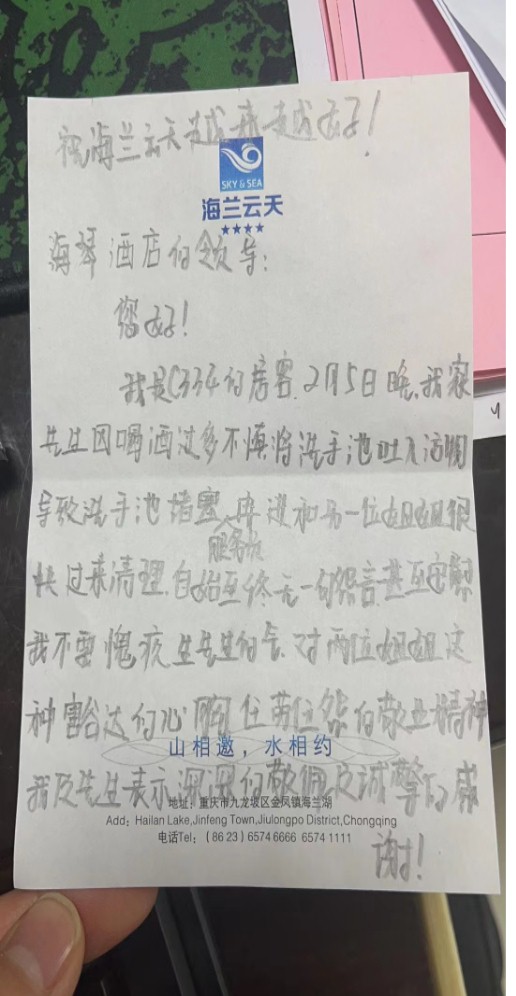 祝海兰云天越来越好!
SKY & SEA
海兰云天
★★★★
海琴酒店的领导:
您好!
我是C334的房客.2月5日晚,我家
先生因喝酒过多不慎将洗手池吐入污物
导致洗手池堵塞.
服务员
和另一位姐姐很
快过来清理.自始至终无一句怨言.甚至安慰
我不要愧疚.生先生的气.对两位姐姐这
种豁达的心胸任劳任怨的敬业精神
山相邀,水相约
我及先生表示深深的敬佩及诚挚的感
地址:重庆市九龙坡区金凤镇海兰湖
Add: Hailan Lake,Jinfeng Town,Jiulongpo District,Chongqing
电话Tel: (86 23) 6574 6666 6574 1111
谢!